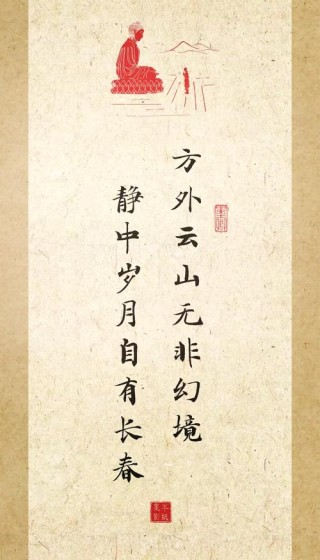 方外云山无非幻境
静中岁月自有长春